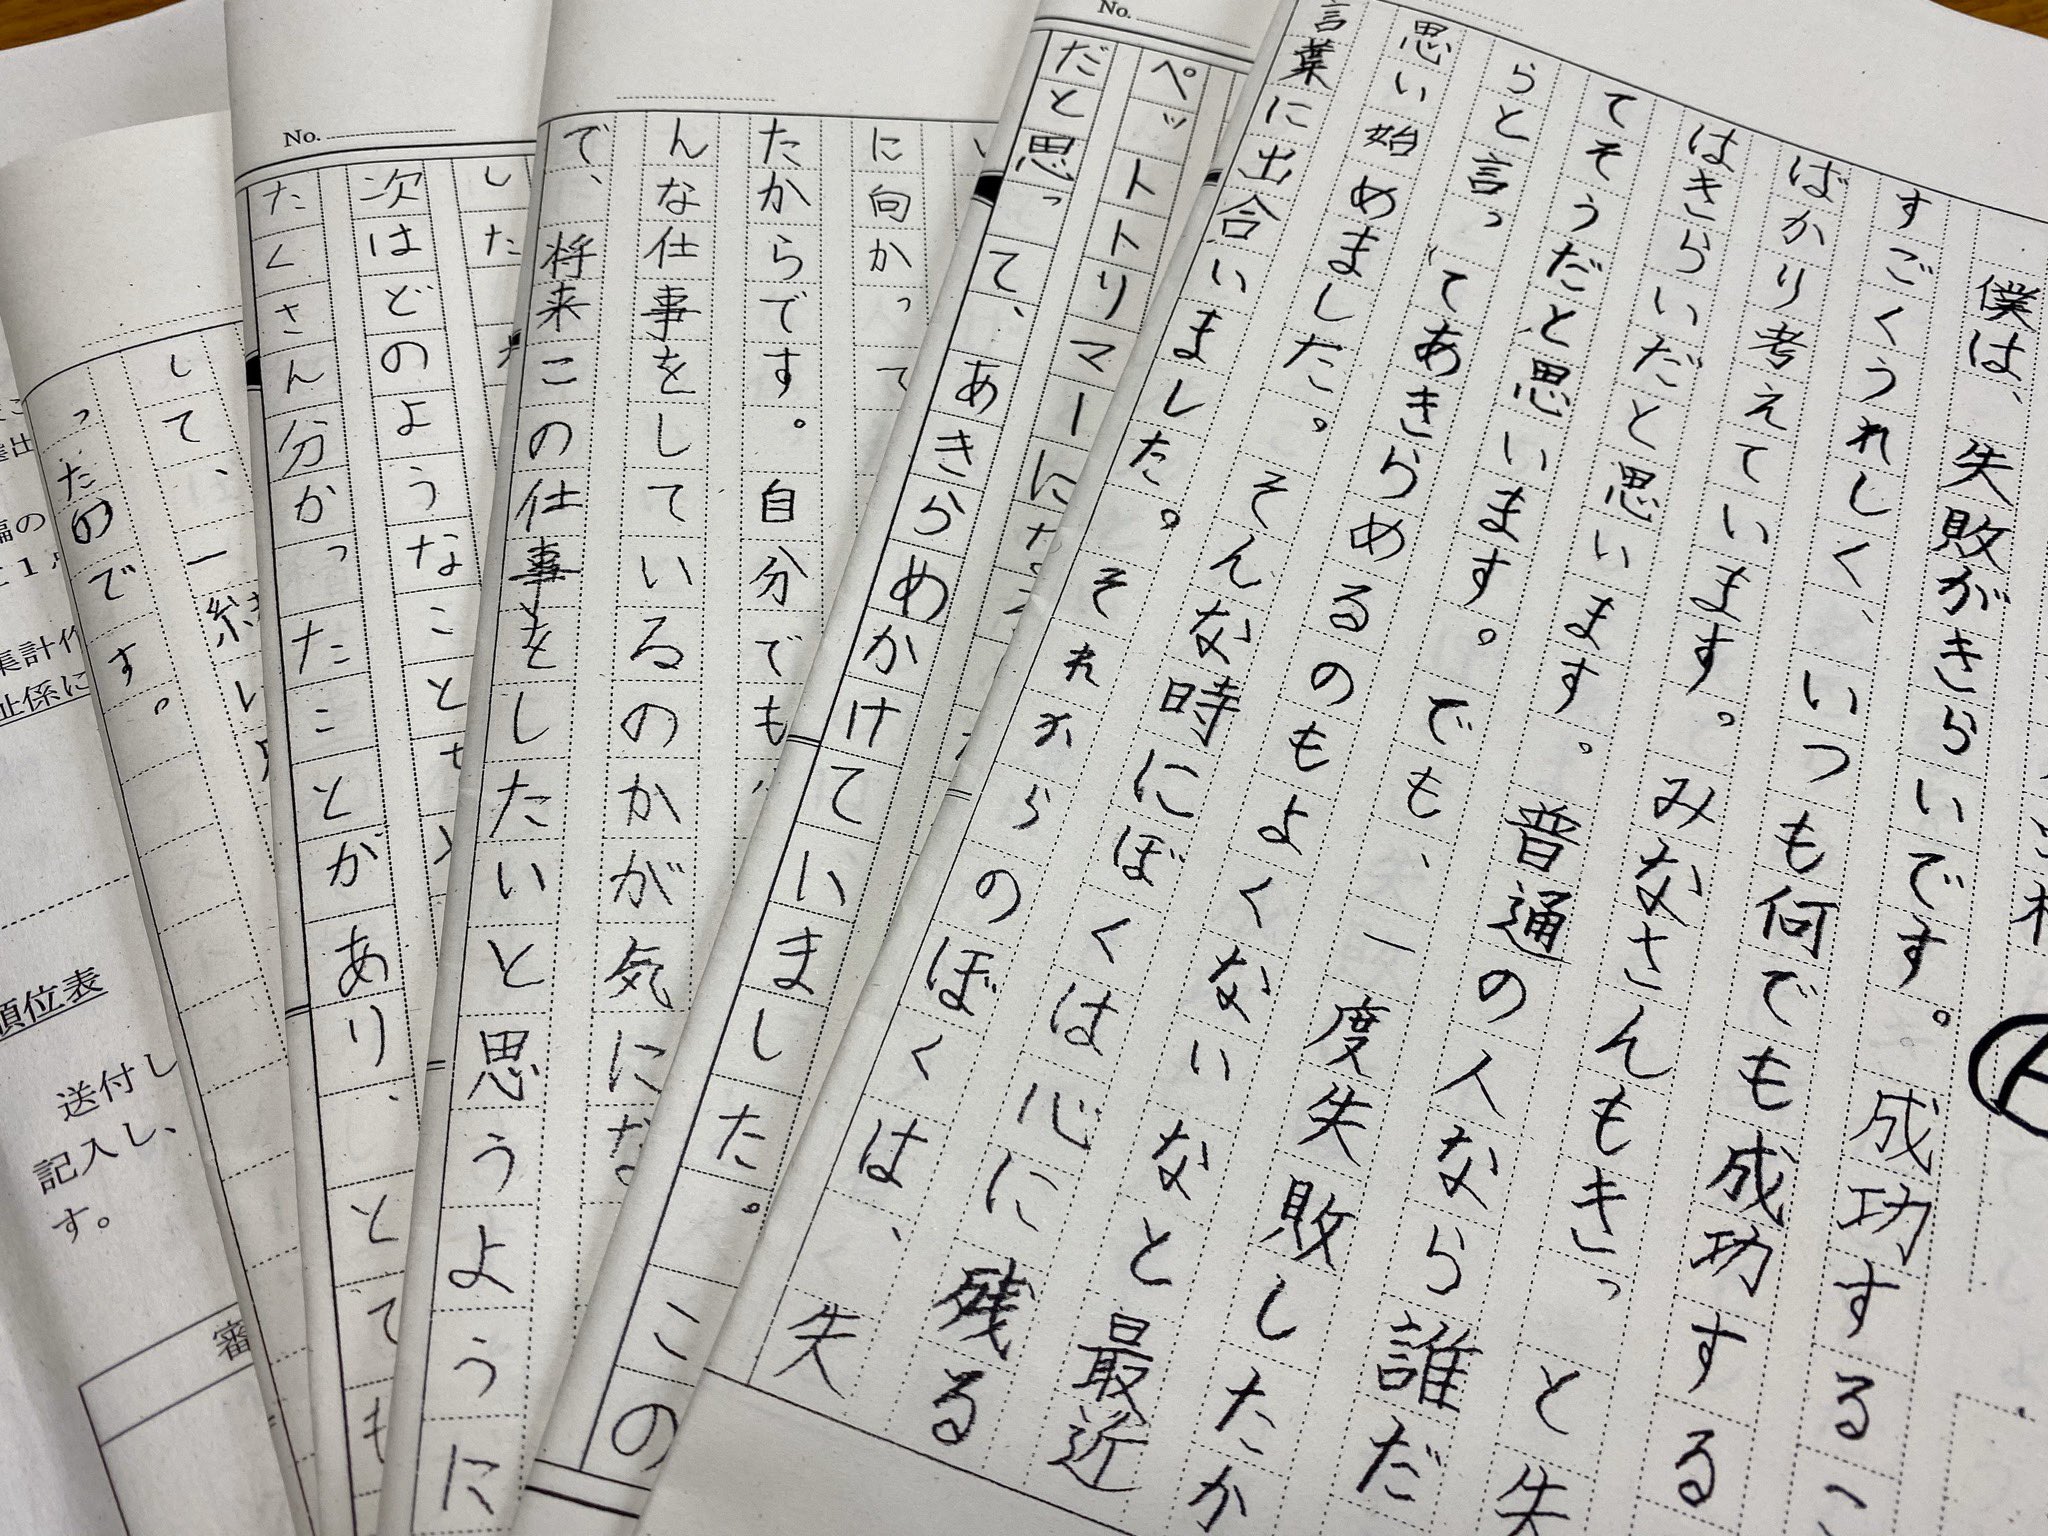 僕は、失敗がきらいです。成功するこ
すごくうれしく、いつも何でも成功する
ばかり考えています。みなさんもきっと失
はきらいだと思います。普通の人なら誰だ
てそうだと思います。でも、一度失敗したか
らと言ってあきらめるのもよくないなと最近
思い始めました。そんな時にぼくは心に残る
言葉に出合いました。それからのぼくは、失
No.
ペットトリマーにな
だと思って、あきらめかけていました。この
に向かって
たからです。自分でも
んな仕事をしているのかが気にな
で、将来この仕事をしたいと思うように
No.
した
次はどのようなことも
たくさん分かったことがあり、とても
して、一緒に
ったのです。
集計作
係に
順位表
送付し
記入し、
す。
審